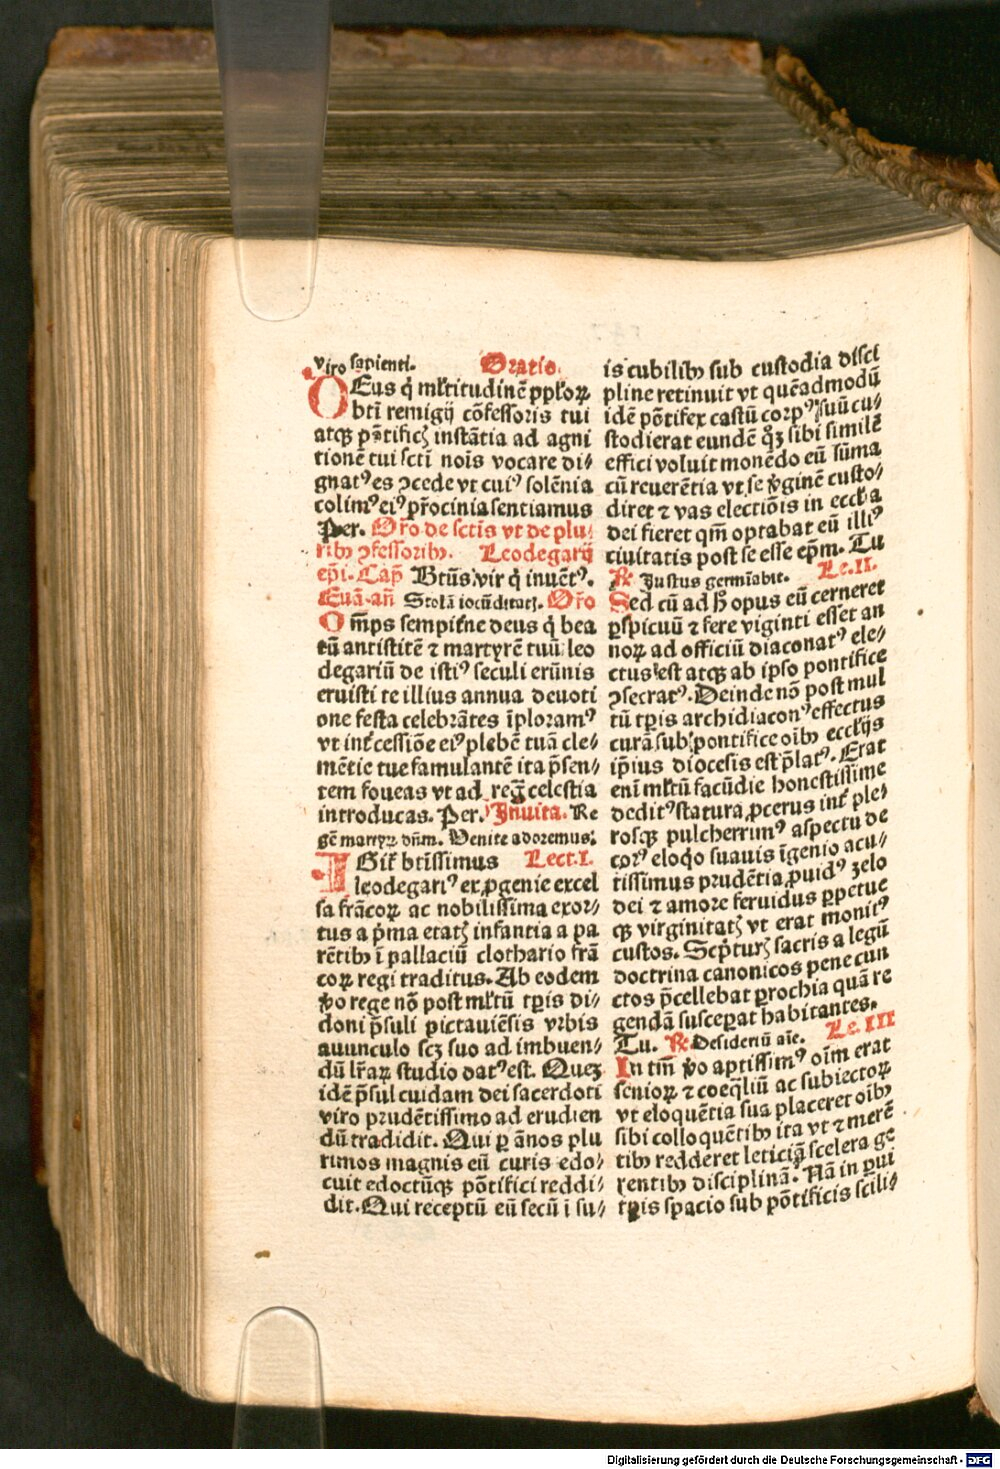 viro sapienti. Oratio.
DEus q̇ ml̄titudinē ppl̓oꝝ
bti remigij cōfessoris tui
atqꝫ pōtificꝭ instātia ad agni
tionē tui scti nois vocare di⸗
gnatꝰ es ꝯcede vt cuiꝰ solēnia
colimꝰ eiꝰ pr̄ocinia sentiamus
Per. Oro de sctīs vt de plu⸗
ribꝫ ꝯfessoribꝫ. Leodegarij
epi. Cap̄ Btūs vir q̇ inuētꝰ.
Euā. añ Stolā iocūditatꝭ. Oro
Omp̄s sempit̓ne deus q̇ bea
tū antistitē ⁊ martyrē tuū leo
degariū de istiꝰ seculi erūnis
eruisti te illius annua deuoti
one festa celebrātes īploramꝰ
vt int̓cessiōe eiꝰ plebē tuā cle⸗
mētie tue famulantē ita p̄sen⸗
tem foueas vt ad regna celestia
introducas. Per. Inuita. Re
gē martyꝝ dn̄m. Venite adoremus.
IGit̓ btissimus Lect.I.
leodegariꝰ ex ꝓgenie excel
sa frācoꝝ ac nobilissima exor⸗
tus a p̓ma etatꝭ infantia a pa
rētibꝫ ī pallaciū clothario frā
coꝝ regi traditus. Ab eodem
v̓o rege nō post ml̓tū tp̄is di⸗
doni p̄suli pictauiēsis vrbis
auunculo scꝫ suo ad imbuen⸗
dū lr̄aꝝ studio datꝰ est. Quez
idē p̄sul cuidam dei sacerdoti
viro prudētissimo ad erudien
dū tradidit. Qui ꝑ ānos plu
rimos magnis eū curis edo⸗
cuit edoctūqꝫ pōtifici reddi⸗
dit. Qui receptū eū secū i su⸗
is cubilibꝫ sub custodia disci
pline retinuit vt quēadmodū
idē pōtifex castū corpꝰ suū cu⸗
stodierat eundē qꝫ sibi similē
effici voluit monēdo eū sūma
cū reuerētia vt se v̓ginē custo⸗
diret ⁊ vas electiōis in eccl̓a
dei fieret qm̄ optabat eū illiꝰ
ciuitatis post se esse epm̄. Tu
℟ Justus germīabit. Le.II.
Sed cū ad h̓ opus eū cerneret
ꝑspicuū ⁊ fere viginti esset an
noꝝ ad officiū diaconatꝰ ele⸗
ctus est atqꝫ ab ipso pontifice
ꝯsecratꝰ. Deinde nō post mul
tū tp̄is archidiaconꝰ effectus
curā sub pontifice oibꝫ eccl̓ijs
ip̄ius diocesis est p̄latꝰ. Erat
eni ml̓tū facūdie honestissime
deditꝰ statura ꝓcerus int̓ ple⸗
rosqꝫ pulcherrimꝰ aspectu de
corꝰ eloq̓o suauis īgenio acu⸗
tissimus prudētia ꝓuidꝰ zelo
dei ⁊ amore feruidus ꝑpetue
qꝫ virginitatꝭ vt erat monitꝰ
custos. Scp̓turꝭ sacris a legū
doctrina canonicos pene cun
ctos p̄cellebat ꝑrochia quā re
gendā susceꝑat habitantes.
Tu. ℟ Desideriū aīe. Le.III
In tm̄ v̓o aptissimꝰ oīm erat
senioꝝ ⁊ coeq̄liū ac subiectoꝝ
vt eloquētia sua placeret oibꝫ
sibi colloquētibꝫ ita vt ⁊ merē
tibꝫ redderet leticiā scelera ge
rentibꝫ disciplinā. Nā in ꝑui
tp̄is spacio sub pōtificis scili⸗
Digitalisierung gefördert durch die Deutsche Forschungsgemeinschaft - DFG